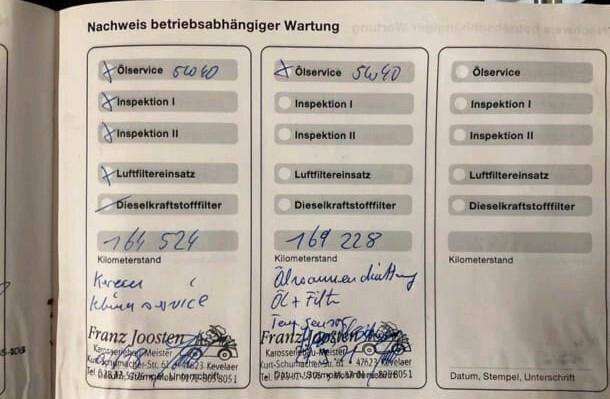 Nachweis betriebsabhängiger Wartung
Ölservice 5W40
Inspektion I
Inspektion II
Luftfiltereinsatz
Dieselkraftstofffilter
164 524
Kilometerstand
Service
Franz Joosten
Karosseriebau-Meister
Kurt-Schumacher-Str. 61 · 47623 Kevelaer
Ölservice 5W40
Inspektion I
Inspektion II
Luftfiltereinsatz
Dieselkraftstofffilter
169 228
Kilometerstand
Ölwannendichtung
Öl + Filter
Franz Joosten
Karosseriebau-Meister
Kurt-Schumacher-Str. 61 · 47623 Kevelaer
Ölservice
Inspektion I
Inspektion II
Luftfiltereinsatz
Dieselkraftstofffilter
Kilometerstand
Datum, Stempel, Unterschrift